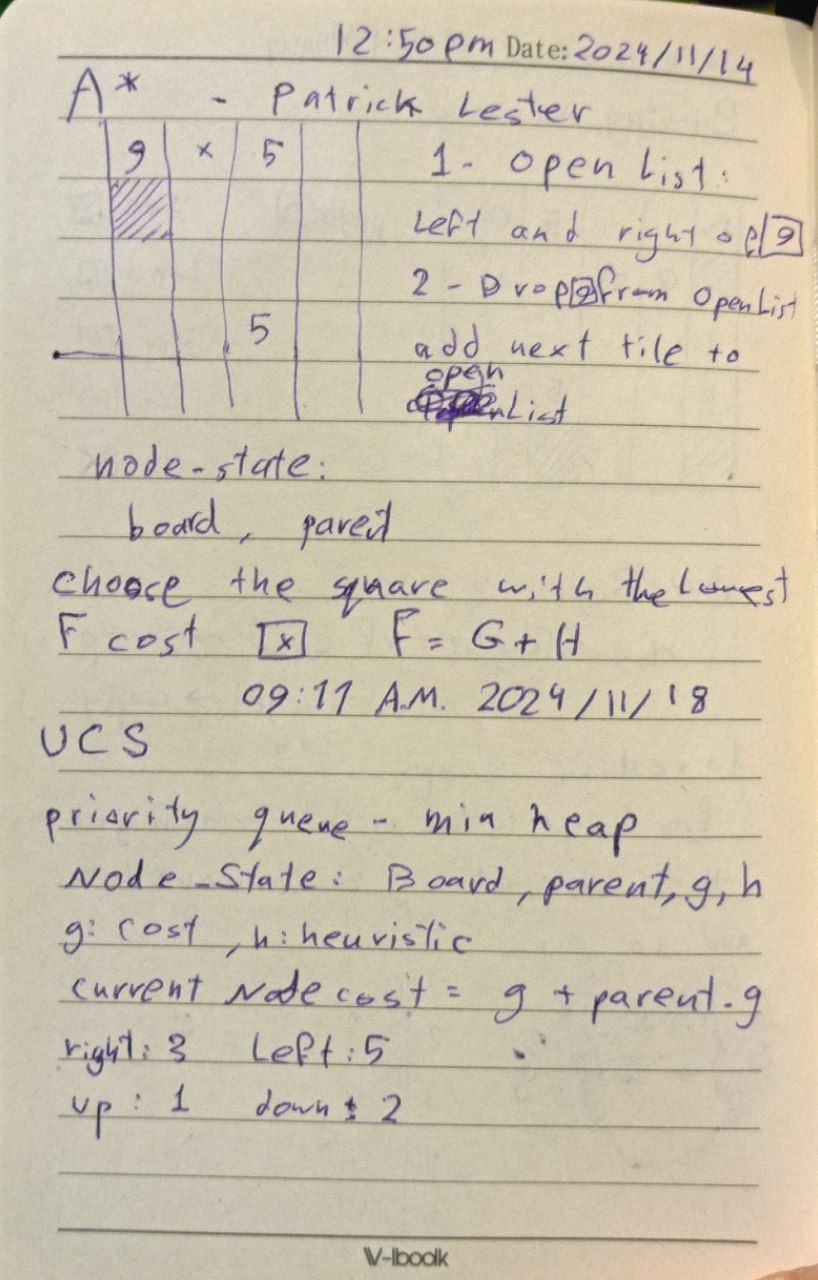 12:50pm Date: 2024/11/14
A* - Patrick Lester
9 x 5
1- open list:
Left and right of 9
2- Drop 9 from OpenList
5
add next tile to
open
List
node-state:
board, parent
choose the square with the Lowest
F cost x F = G + H
09:11 A.M. 2024/11/18
UCS
priority queue - min heap
Node-State: Board, parent, g, h
g: cost, h: heuristic
current Node cost = g + parent.g
right: 3 Left: 5
up: 1 down: 2
V-lbook